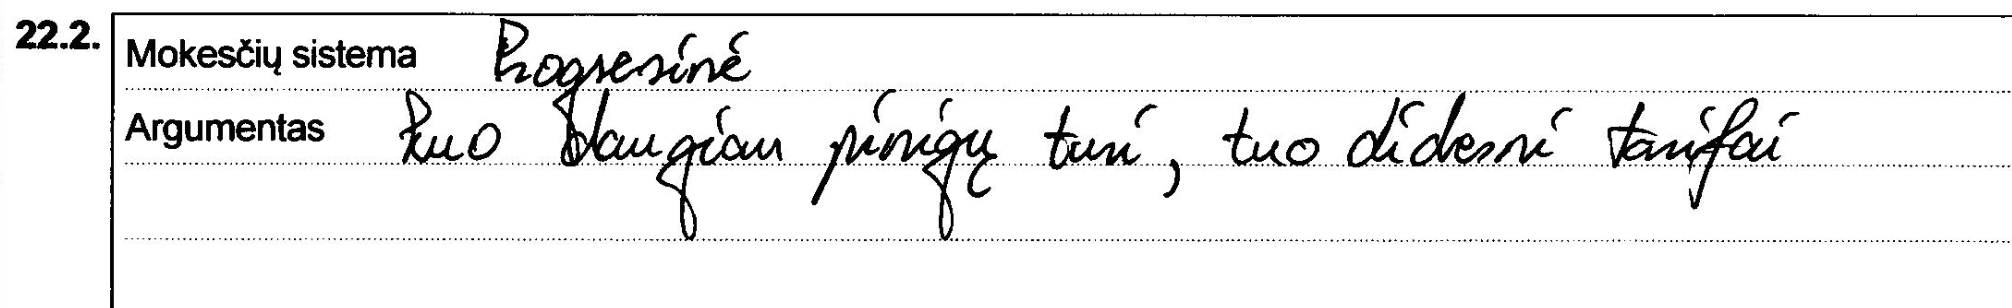 22.2.
Mokesčių sistema Progresinė
Argumentas Kuo daugiau pinigų turi, tuo didesni tarifai